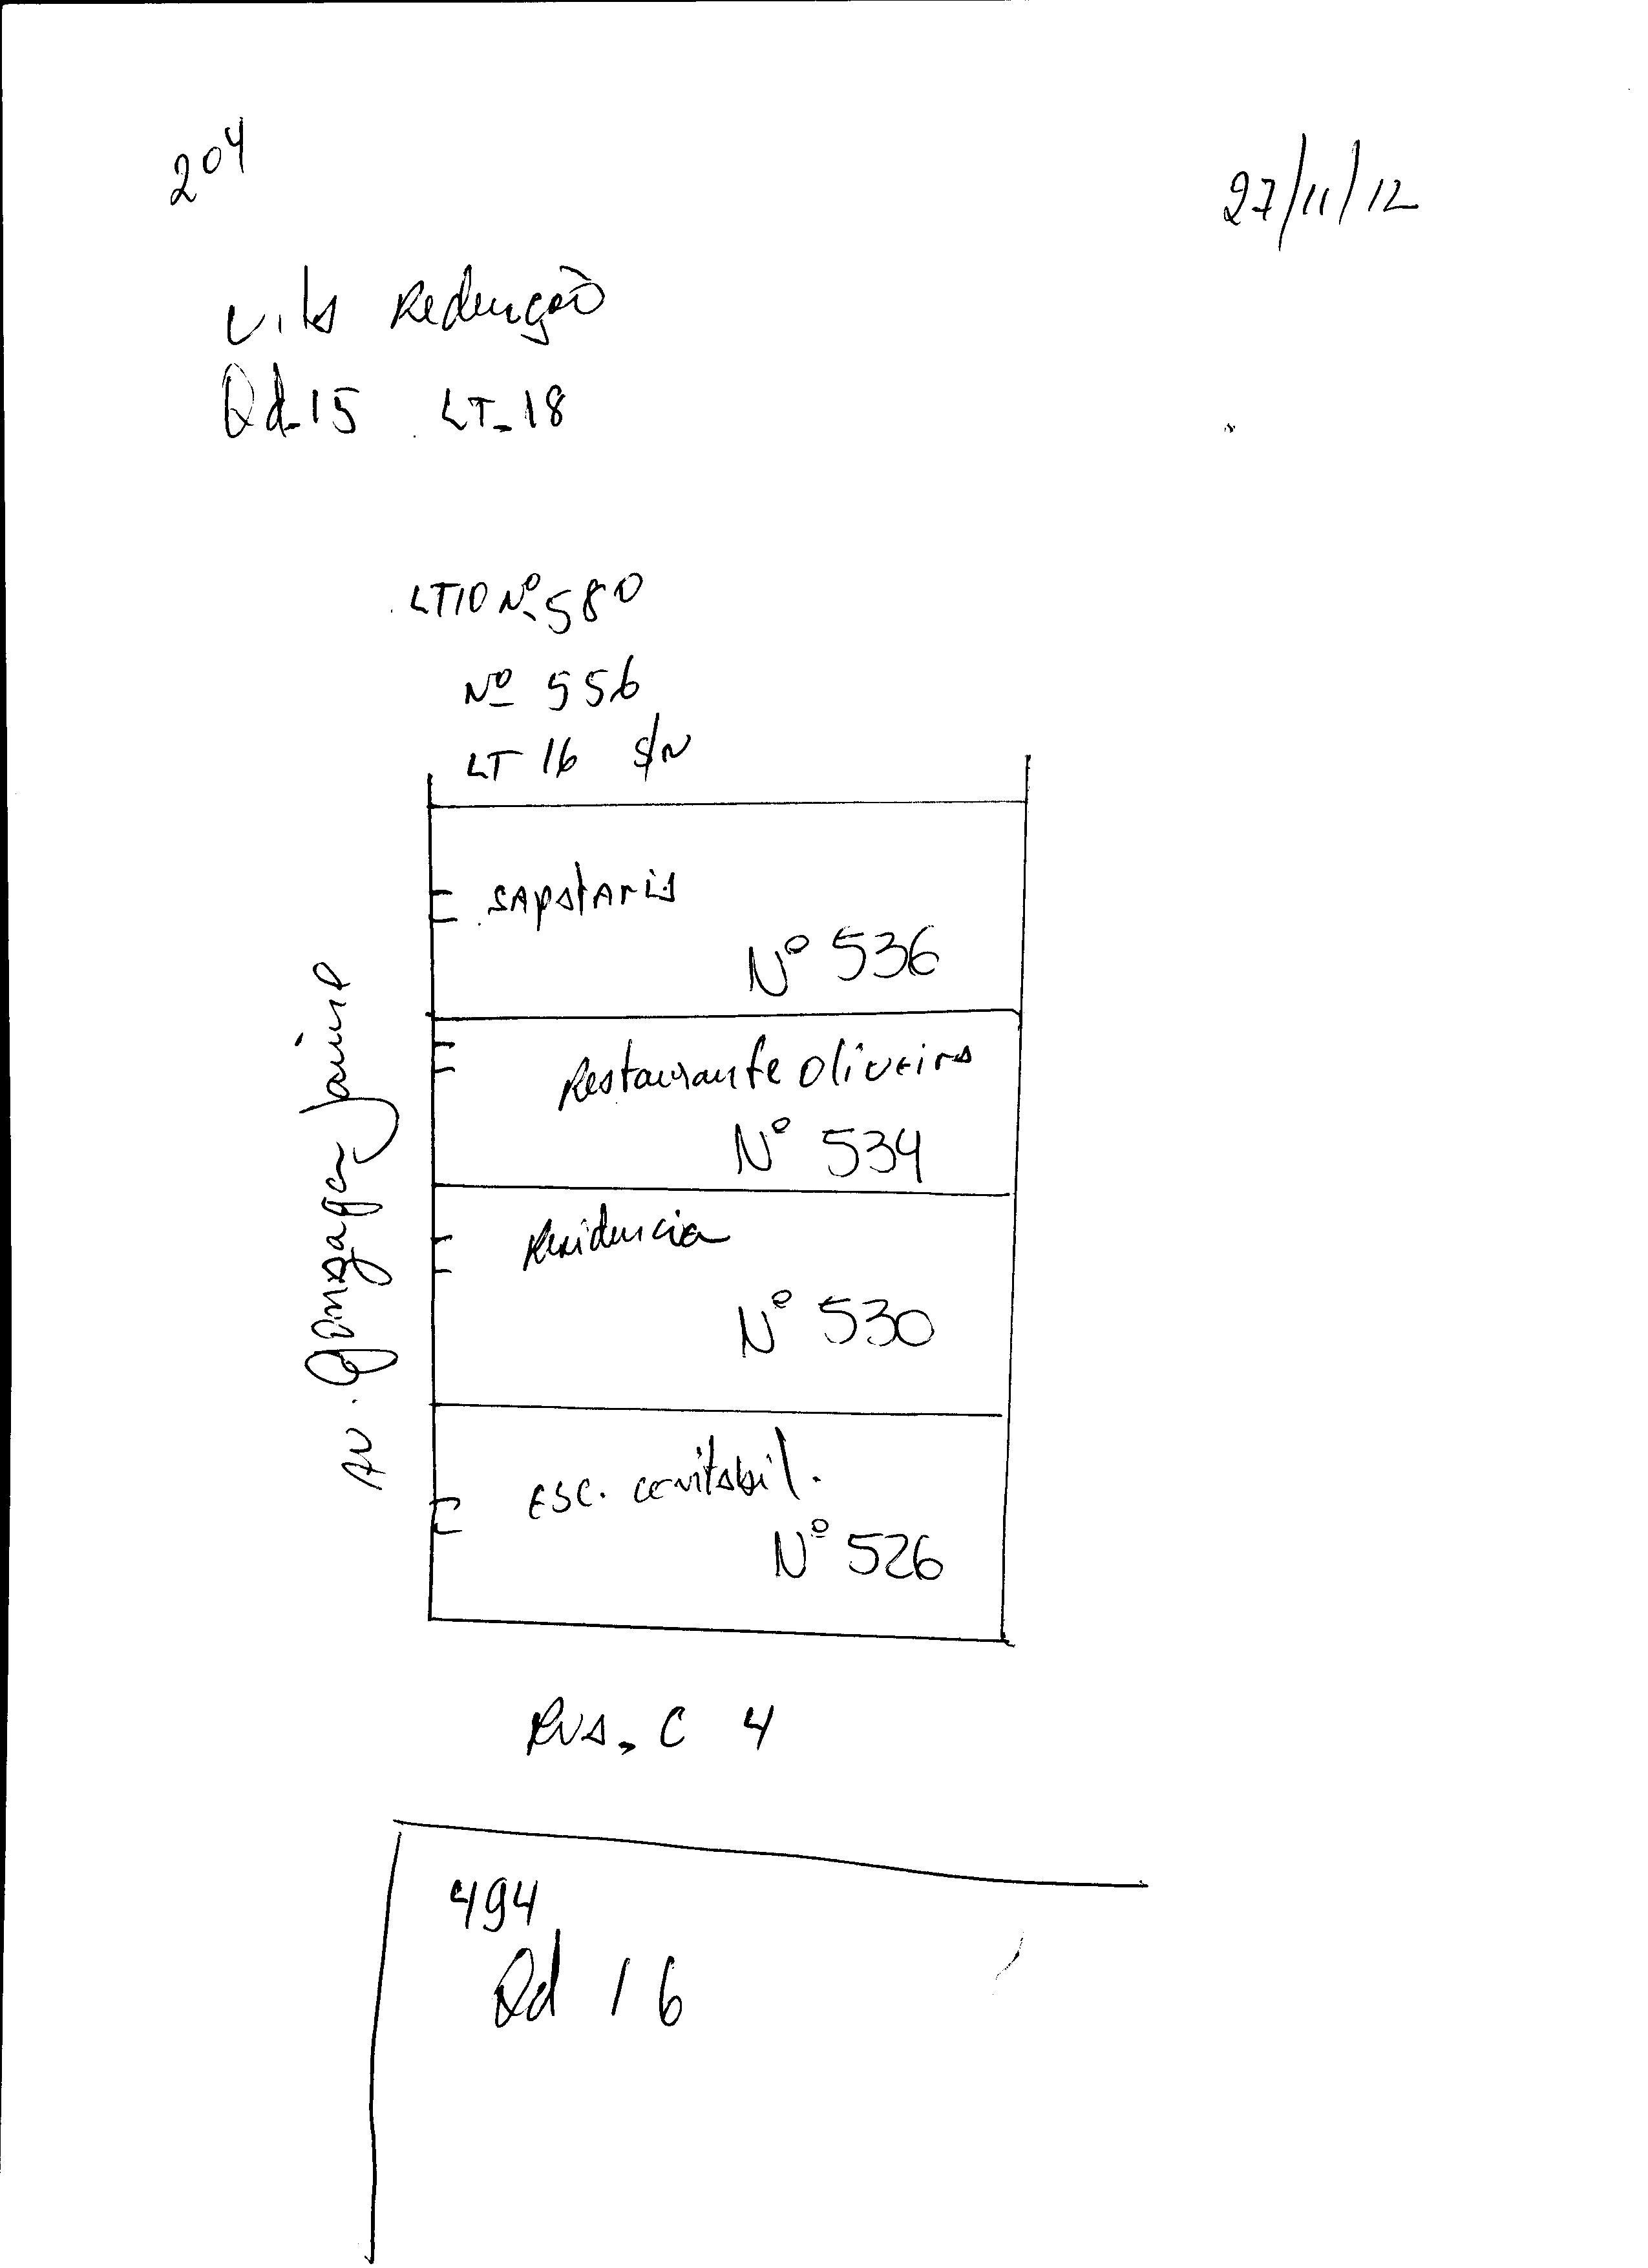 204
27/11/12
Vila Redenção
Qd-15 LT-18
LT10 Nº 580
Nº 556
LT 16 S/N
SApAtAriA
Nº 536
Restaurante Oliveira
Nº 534
Residencia
Nº 530
Esc. contabil.
Nº 526
Av. Gonzaga Jaime
RuA. C 4
494
Qd 16